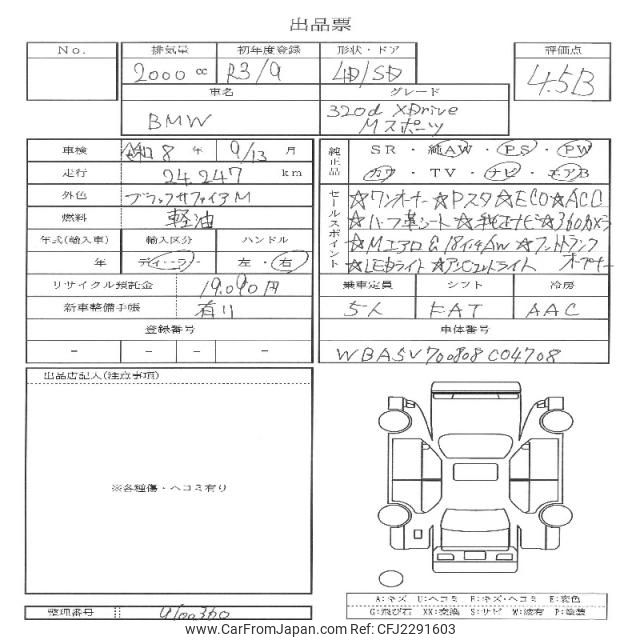 出品票
No. 排気量 初年度登録 形状・ドア 評価点
2000 cc R3/9 4D/SD 4.5B
車名 グレード
BMW 320d XDrive
Mスポーツ
車検 令和 8 年 9/13 月
走行 24,247 km
外色 ブラックサファイアM
燃料 軽油
年式(輸入車) 輸入区分 ハンドル
年 ディーラー 左・右
リサイクル預託金 19,090円
新車整備手帳 有り
登録番号
- - - -
純正品 SR・純AW・PS・PW
カワ・TV・ナビ・エアB
セールスポイント
☆ワンオーナー☆Pスタ☆ECO☆ACC
☆ハーフ革シート☆純正ナビ☆360カメラ
☆Mエアロ&18インチAW ☆フットトランク
オープナー
☆LEDライト ☆アンビエントライト
乗車定員 シフト 冷房
5人 FAT AAC
車体番号
WBA5V700808C04708
出品店記入(注意事項)
※各種傷・ヘコミ有り
A:キズ U:ヘコミ B:キズ・ヘコミ E:変色
G:飛び石 XX:交換 S:サビ W:波有 P:塗装
整理番号 U100360
www.CarFromJapan.com Ref: CFJ2291603